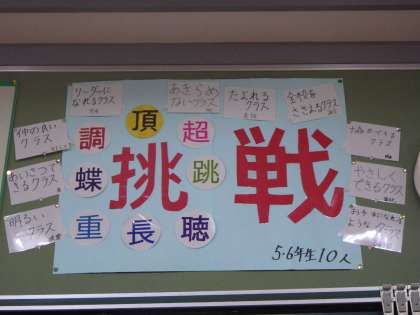 リーダーに
なれるクラス
あきらめ
ないクラス
たよれる
クラス
全校を
ささえるクラス
仲の良い
クラス
あいさつで
きるクラス
明るい
クラス
頂
調
超
蝶
跳
重
長
聴
挑戦
5・6年生10人
クラス
やさしく
できるクラス
ような クラス